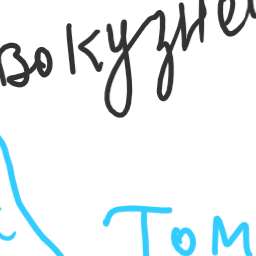 вокузне
Том